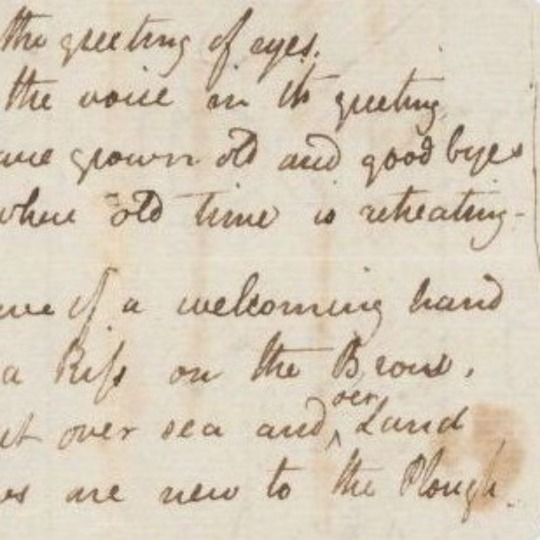 the greeting of eyes.
the voice in its greeting
have grown old and good byes
where old time is retreating-
wave of a welcoming hand
a Kiss on the Brow.
out over sea and oer Land
are new to the Plough.